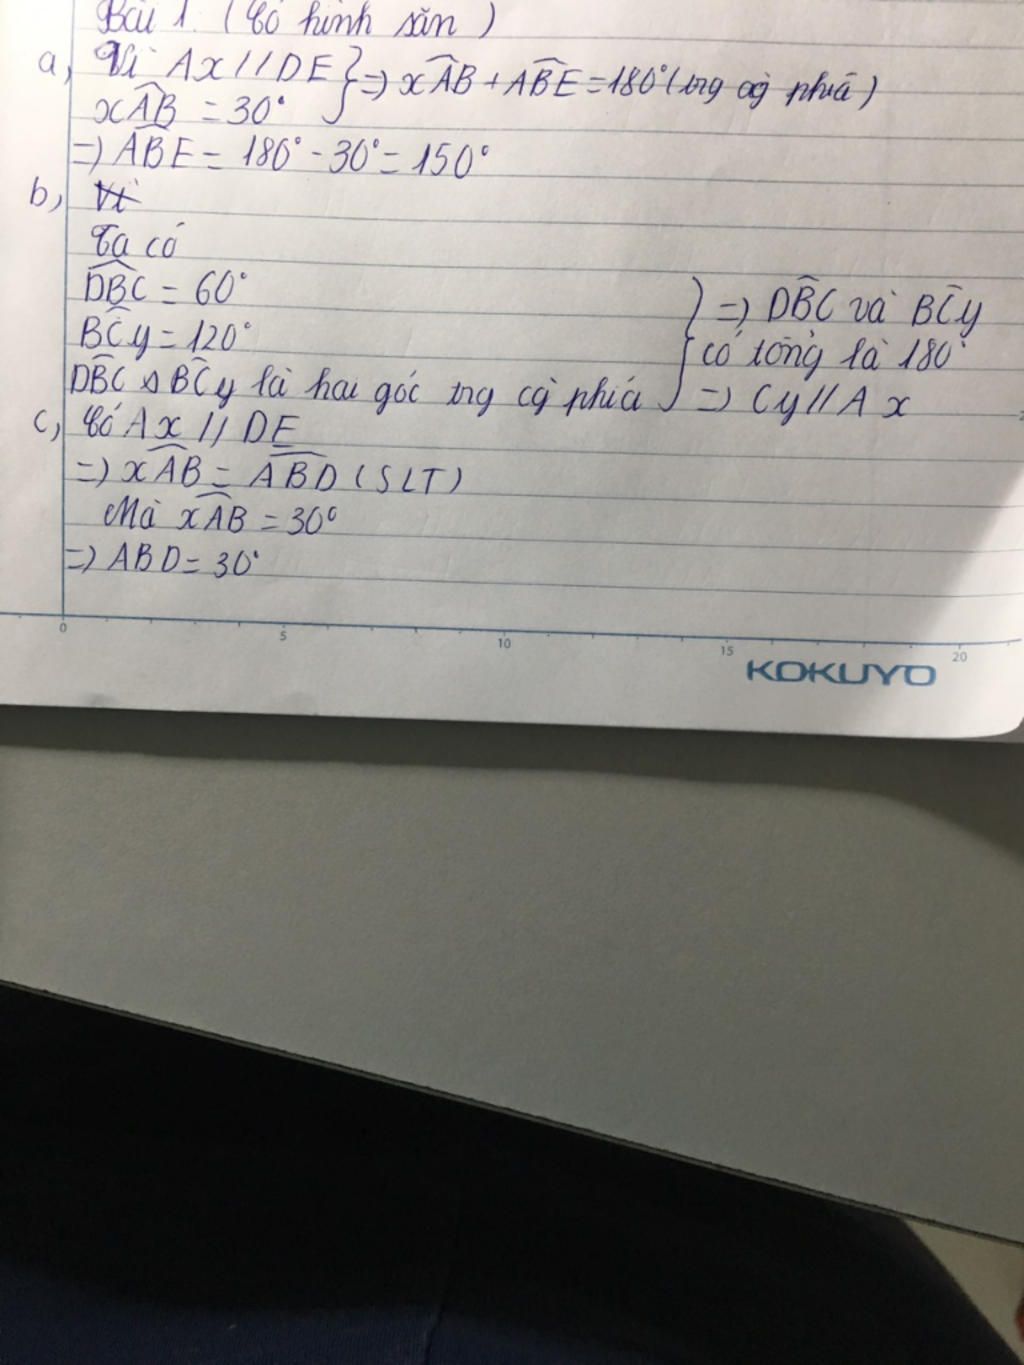 Bài 1. (Có hình sẵn)
a, Vì Ax // DE } => xÂB + AB̂E = 180° (trg cg phiá)
xÂB = 30°
=> AB̂E = 180° - 30° = 150°
b, Vì
Ta có
DB̂C = 60°
BĈy = 120°
DB̂C & BĈy là hai góc trg cg phiá } => DB̂C và BĈy
có tổng là 180°
=> Cy // Ax
c, Có Ax // DE
=> xÂB = AB̂D (SLT)
Mà xÂB = 30°
=> ABD = 30°
0 5 10 15 20
KOKUYO